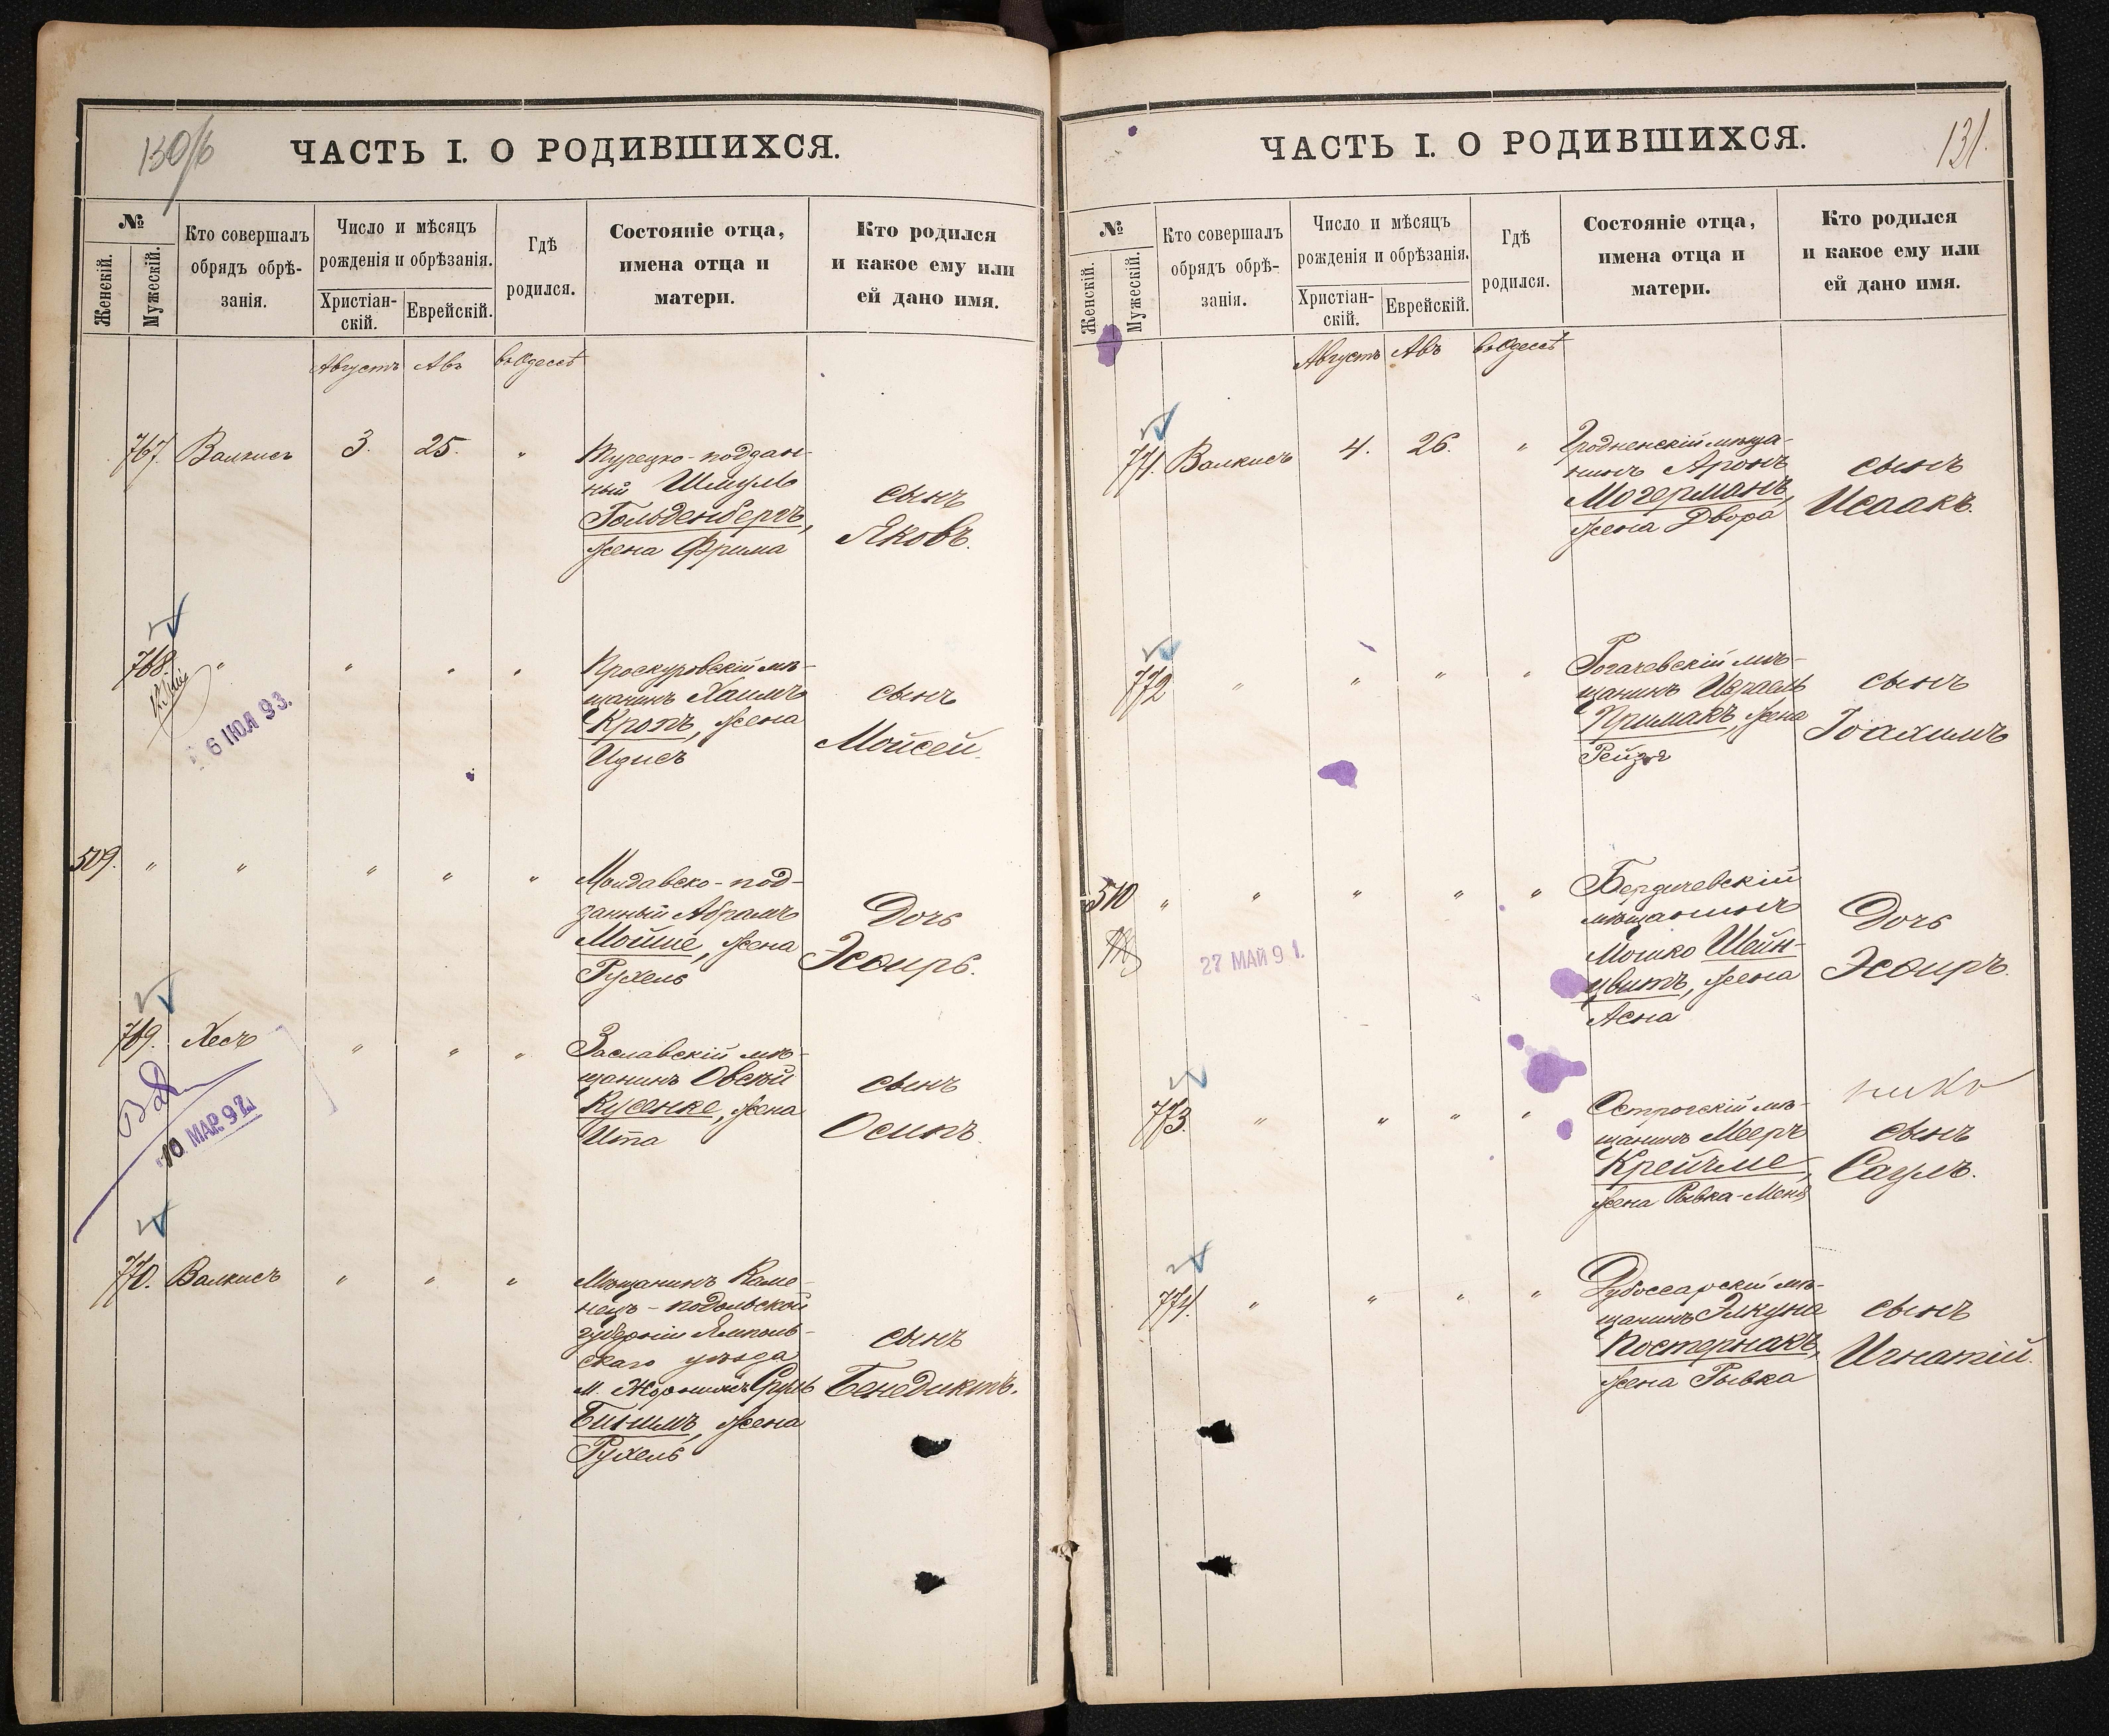 130/б
ЧАСТЬ I. О РОДИВШИХСЯ.
№
Женскій.
Мужескій.
Кто совершалъ
обрядъ обрѣ-
занія.
Число и мѣсяцъ
рожденія и обрѣзанія.
Христіан-
скій.
Еврейскій.
Гдѣ
родился.
Состояніе отца,
имена отца и
матери.
Кто родился
и какое ему или
ей дано имя.
Августъ Авъ въ Одессѣ
767. Валкисъ 3. 25. "
Турецко-поддан-
ный Шмуль
Гольденбергъ,
жена Фрима
сынъ
Яковъ.
768. " " " "
6 ІЮЛ 93.
Проскуровскій мѣ-
щанинъ Хаимъ
Кропъ, жена
Идисъ
сынъ
Мойсей.
509. " " " " "
Молдавско-под-
данный Абрамъ
Мойше, жена
Рухель
Дочь
Эсѳирь.
769. Хесъ " " "
10 МАР. 97
Заславскій мѣ-
щанинъ Овсѣй
Кусенке, жена
Ита
сынъ
Осипъ.
770. Валкисъ " " "
Мѣщанинъ Каме-
нецъ-подольской
губерніи Ямполь-
скаго уѣзда
м. Сруль
Бинимъ, жена
Рухель
сынъ
Бенедиктъ.
131.
ЧАСТЬ I. О РОДИВШИХСЯ.
№
Женскій.
Мужескій.
Кто совершалъ
обрядъ обрѣ-
занія.
Число и мѣсяцъ
рожденія и обрѣзанія.
Христіан-
скій.
Еврейскій.
Гдѣ
родился.
Состояніе отца,
имена отца и
матери.
Кто родился
и какое ему или
ей дано имя.
Августъ Авъ въ Одессѣ
771. Валкисъ 4. 26. "
Гродненскій мѣща-
нинъ Аронъ
Могерманъ,
жена Двора
сынъ
Исаакъ.
772 " " " "
Рогачевскій мѣ-
щанинъ Израель
Примакъ, жена
Рейзя
сынъ
Іоахимъ
510 " " " " "
27 МАЙ 91.
Бердичевскій
мѣщанинъ
Мошко Шейн-
цвитъ, жена
Асна
Дочь
Эсѳиръ.
773. " " " "
Острогскій мѣ-
щанинъ Мееръ
Крейчме,
жена Рывка-Меня
сынъ
Саулъ.
774. " " " "
Дубоссарскій мѣ-
щанинъ Элкуна
Постернакъ,
жена Рывка
сынъ
Игнатій.